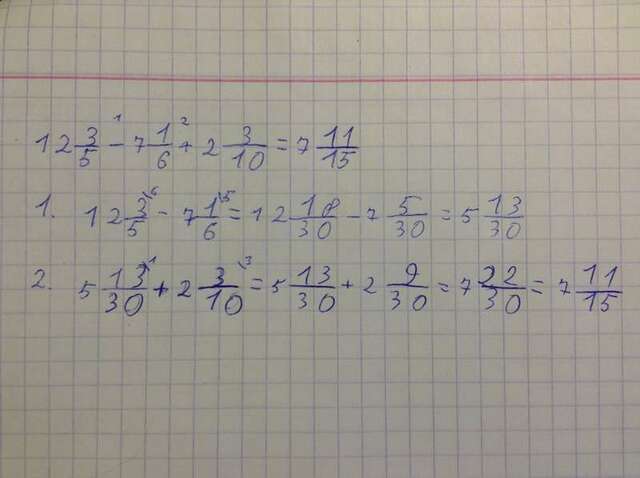 12 3/5 -¹ 7 1/6 +² 2 3/10 = 7 11/15
1. 12 3\6/5 - 7 1\5/6 = 12 18/30 - 7 5/30 = 5 13/30
2. 5 13\1/30 + 2 3\3/10 = 5 13/30 + 2 9/30 = 7 22/30 = 7 11/15